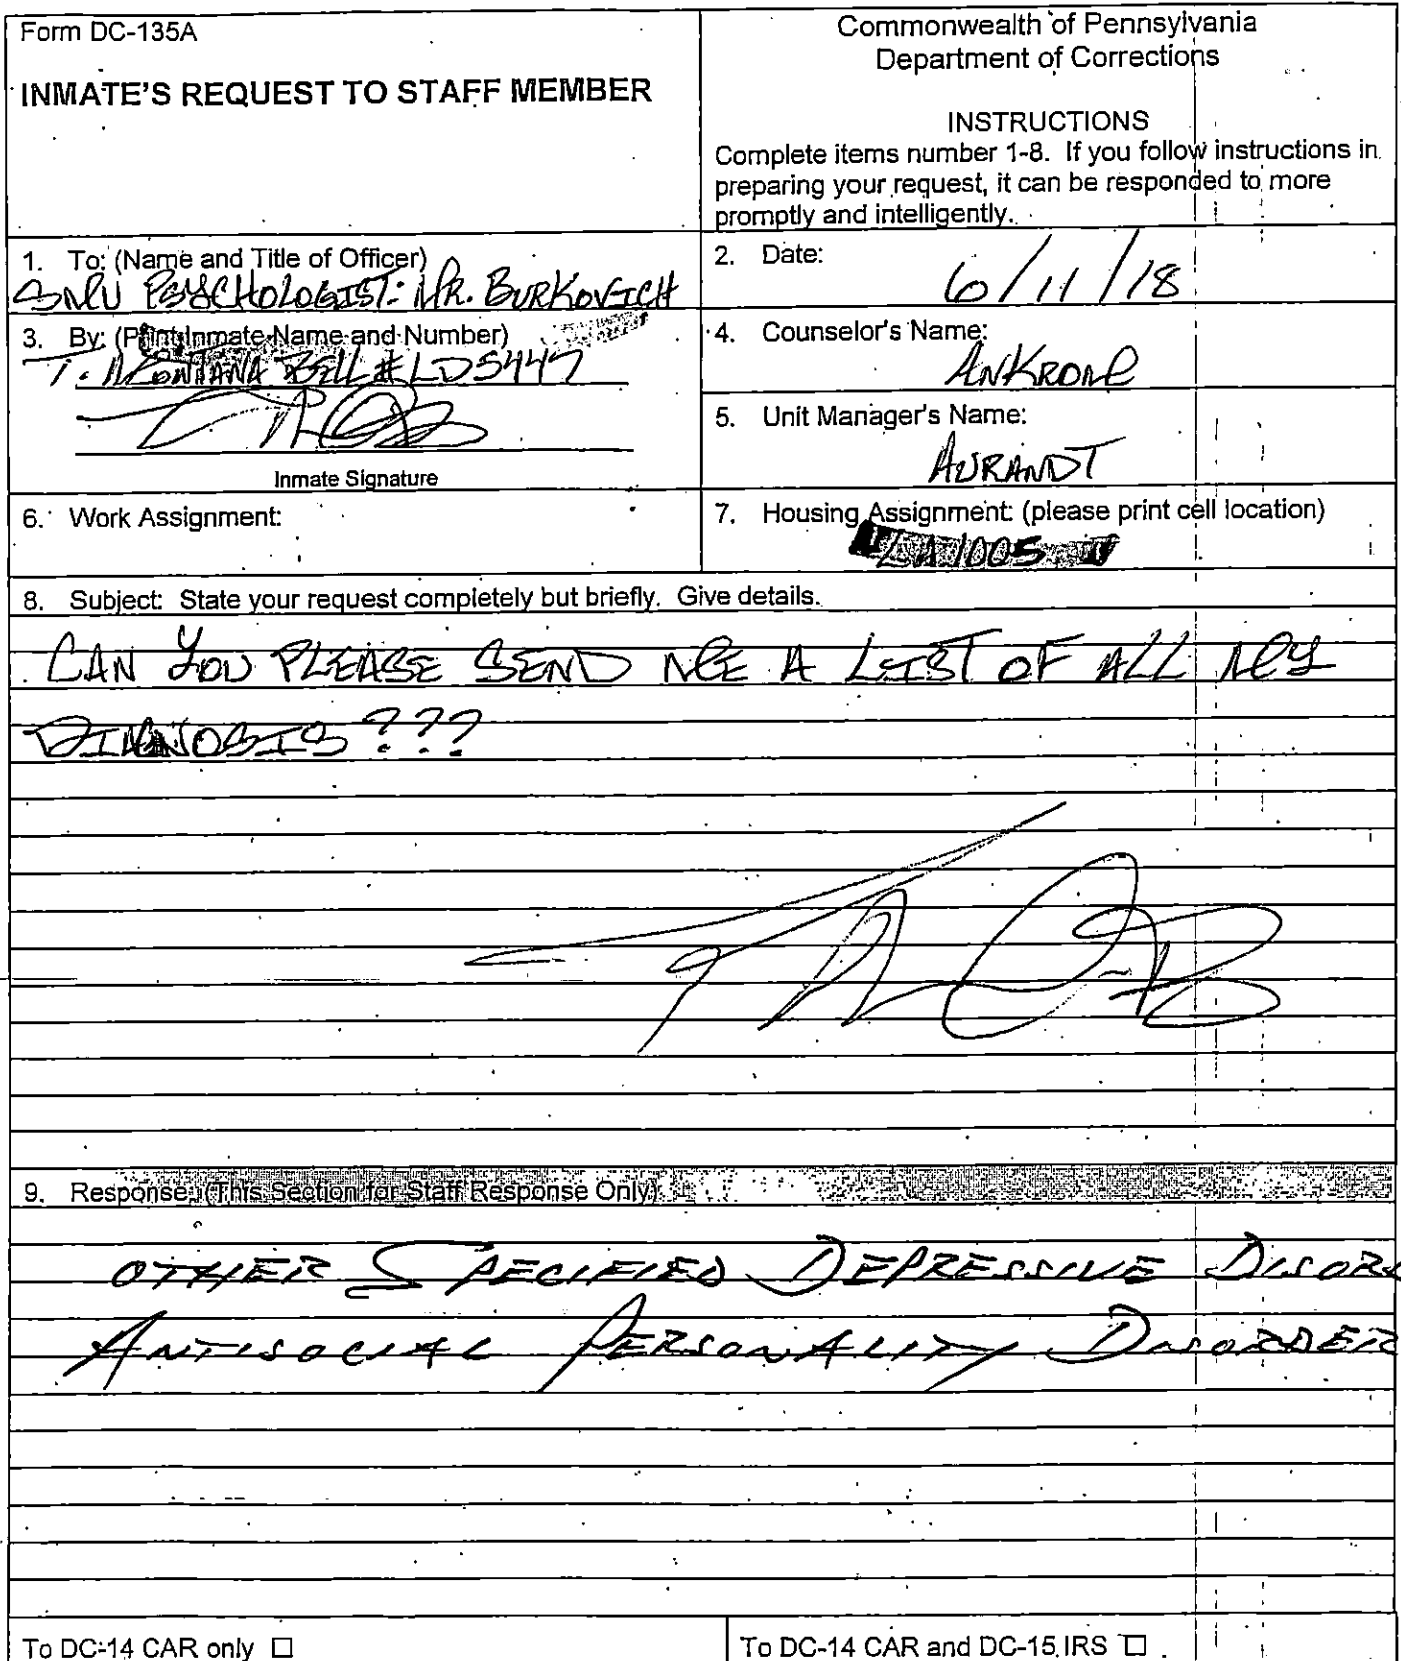 Form DC-135A
INMATE'S REQUEST TO STAFF MEMBER
Commonwealth of Pennsylvania
Department of Corrections
INSTRUCTIONS
Complete items number 1-8. If you follow instructions in
preparing your request, it can be responded to more
promptly and intelligently.
1. To: (Name and Title of Officer)
PSYCHOLOGIST: MR. BURKOVICH
2. Date:
6/11/18
3. By: (Print Inmate Name and Number)
T. MONTANA BELL # LD5447
Inmate Signature
4. Counselor's Name:
ANKROM
5. Unit Manager's Name:
AURANDT
6. Work Assignment:
7. Housing Assignment: (please print cell location)
1005
8. Subject: State your request completely but briefly. Give details.
CAN YOU PLEASE SEND ME A LIST OF ALL MY
DIAGNOSIS ???
9. Response: (This Section for Staff Response Only)
OTHER SPECIFIED DEPRESSIVE DISOR
ANTISOCIAL PERSONALITY DISORDER
To DC-14 CAR only ☐
To DC-14 CAR and DC-15 IRS ☐